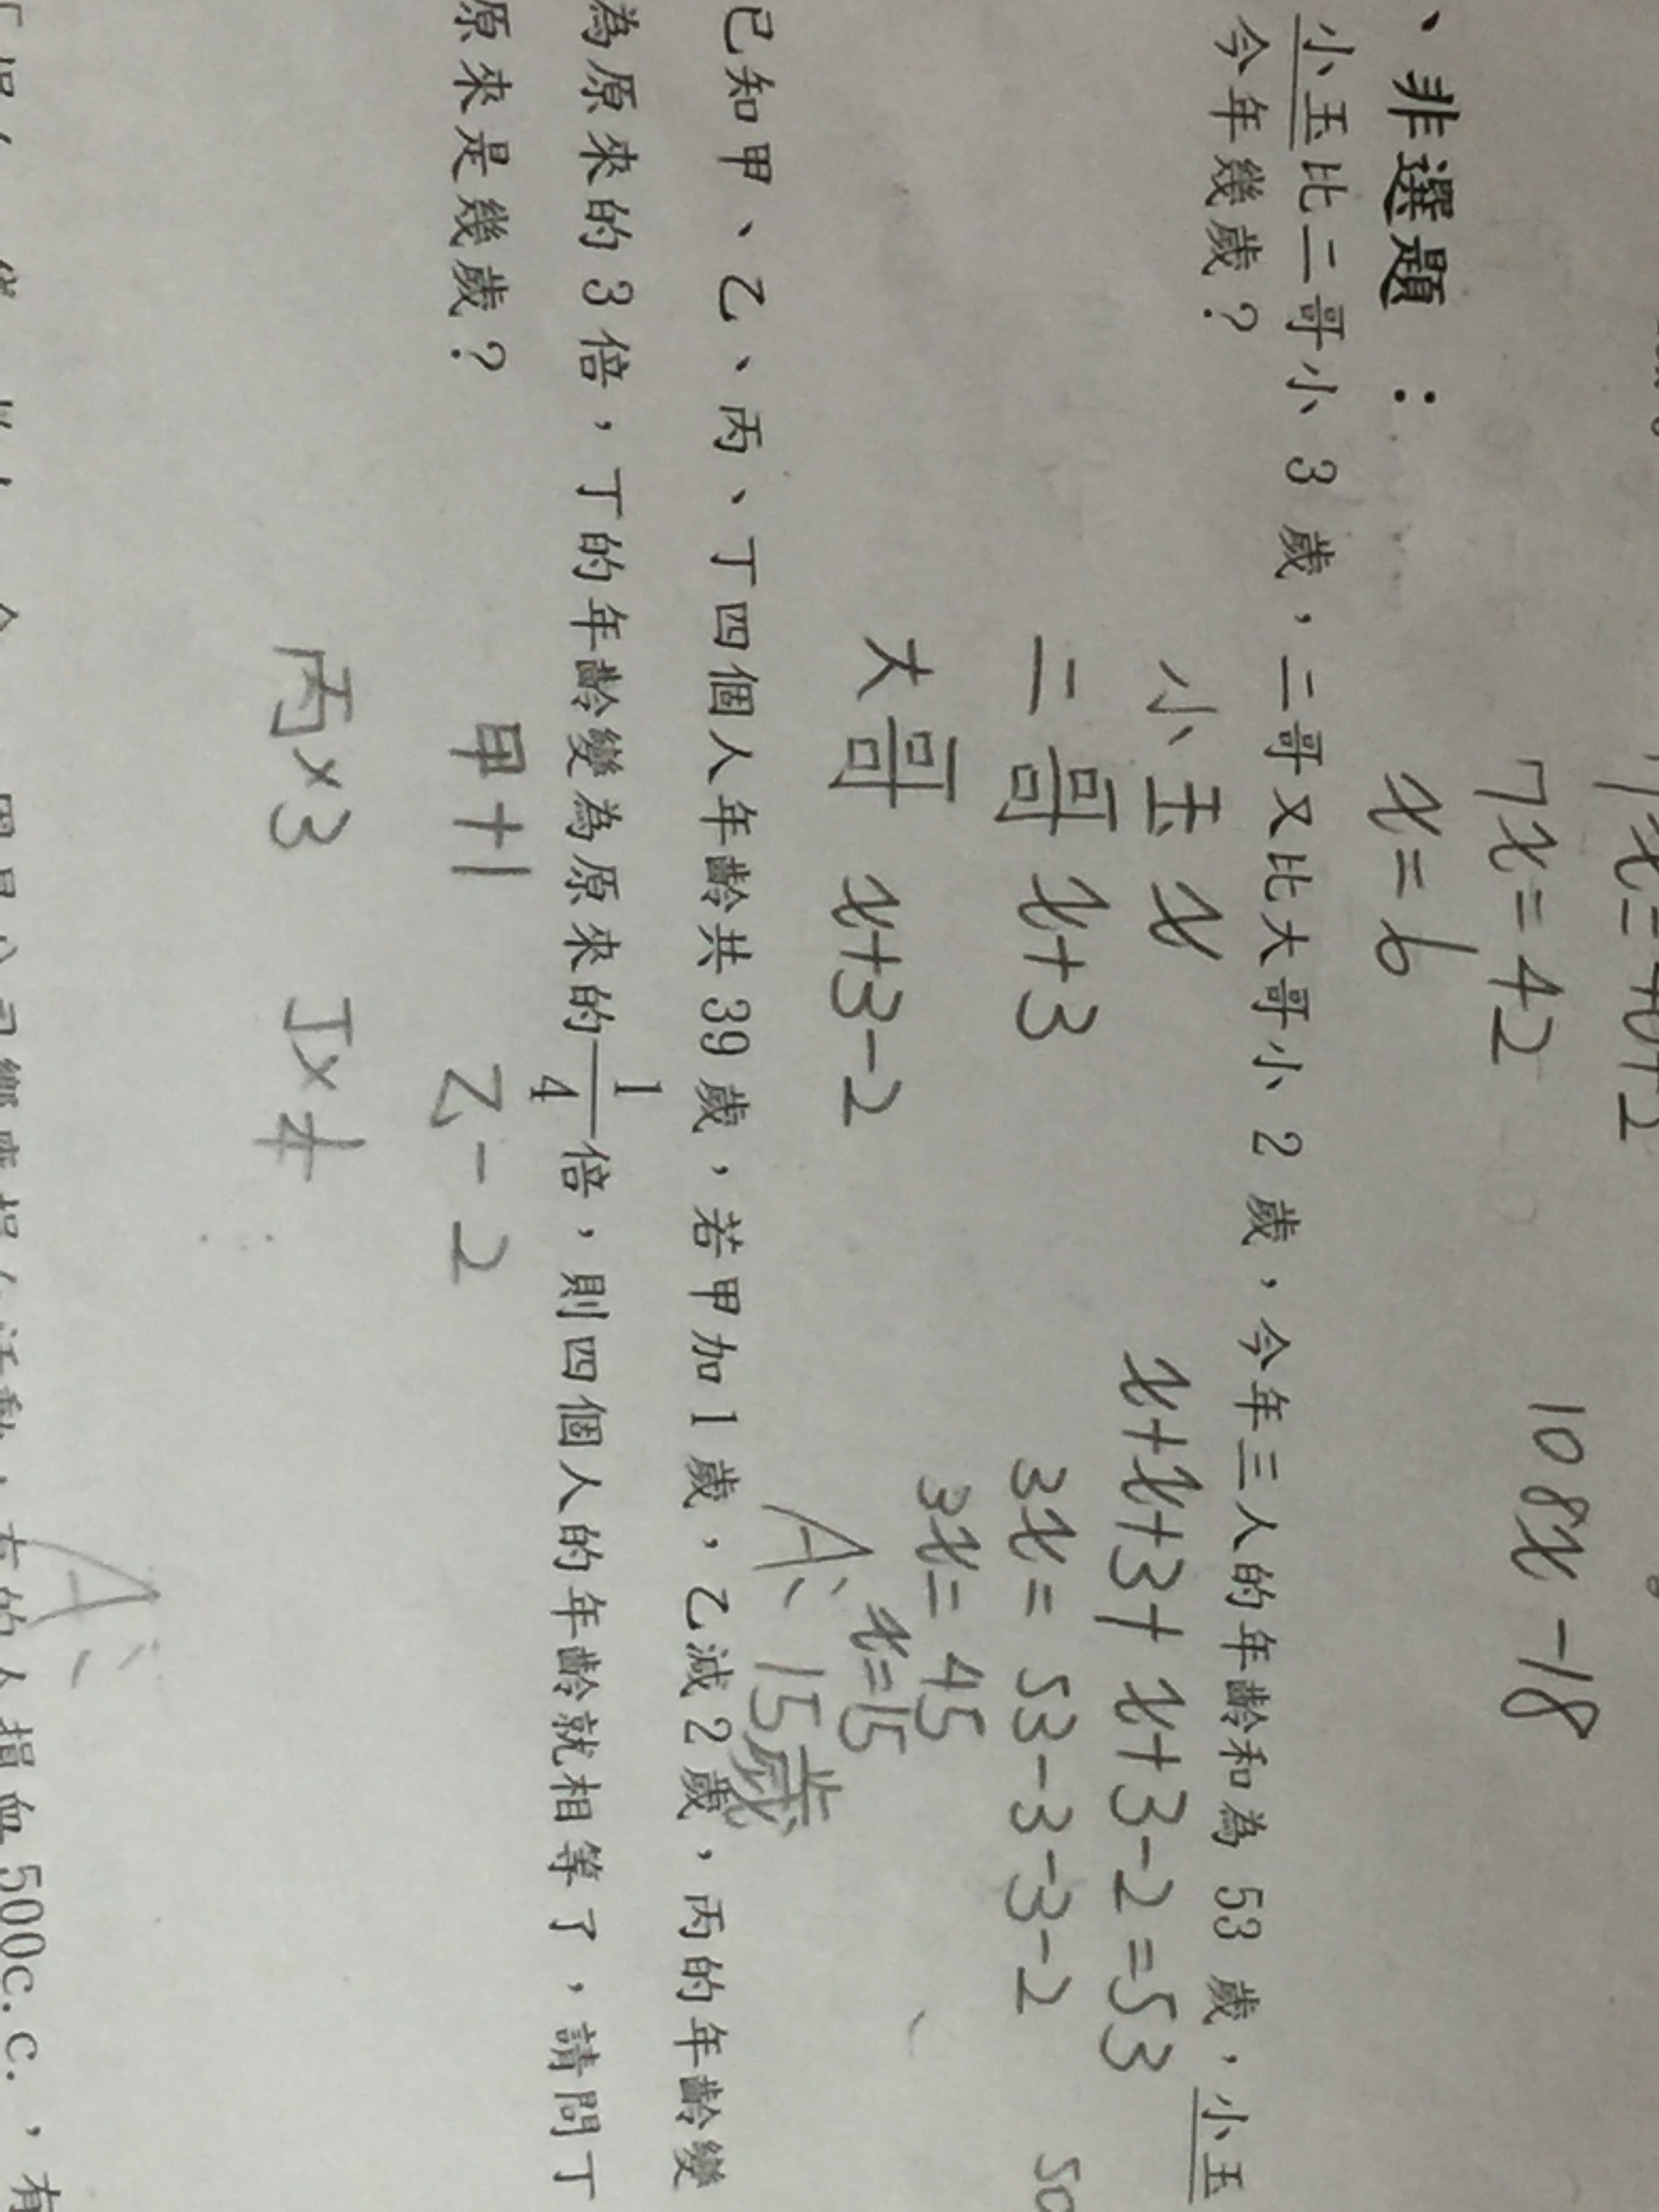 7x=42
x=6
108x-18
、非選題：
小玉比二哥小 3 歲，二哥又比大哥小 2 歲，今年三人的年齡和為 53 歲，小玉
今年幾歲？
小玉 x
二哥 x+3
大哥 x+3-2
x+x+3+x+3-2=53
3x=53-3-3-2
3x=45
x=15
A、15歲
已知甲、乙、丙、丁四個人年齡共 39 歲，若甲加 1 歲，乙減 2 歲，丙的年齡變
為原來的 3 倍，丁的年齡變為原來的 1/4 倍，則四個人的年齡就相等了，請問丁
原來是幾歲？
甲+1 乙-2
丙×3 丁×
A、
有的人捐血 500c.c.，有